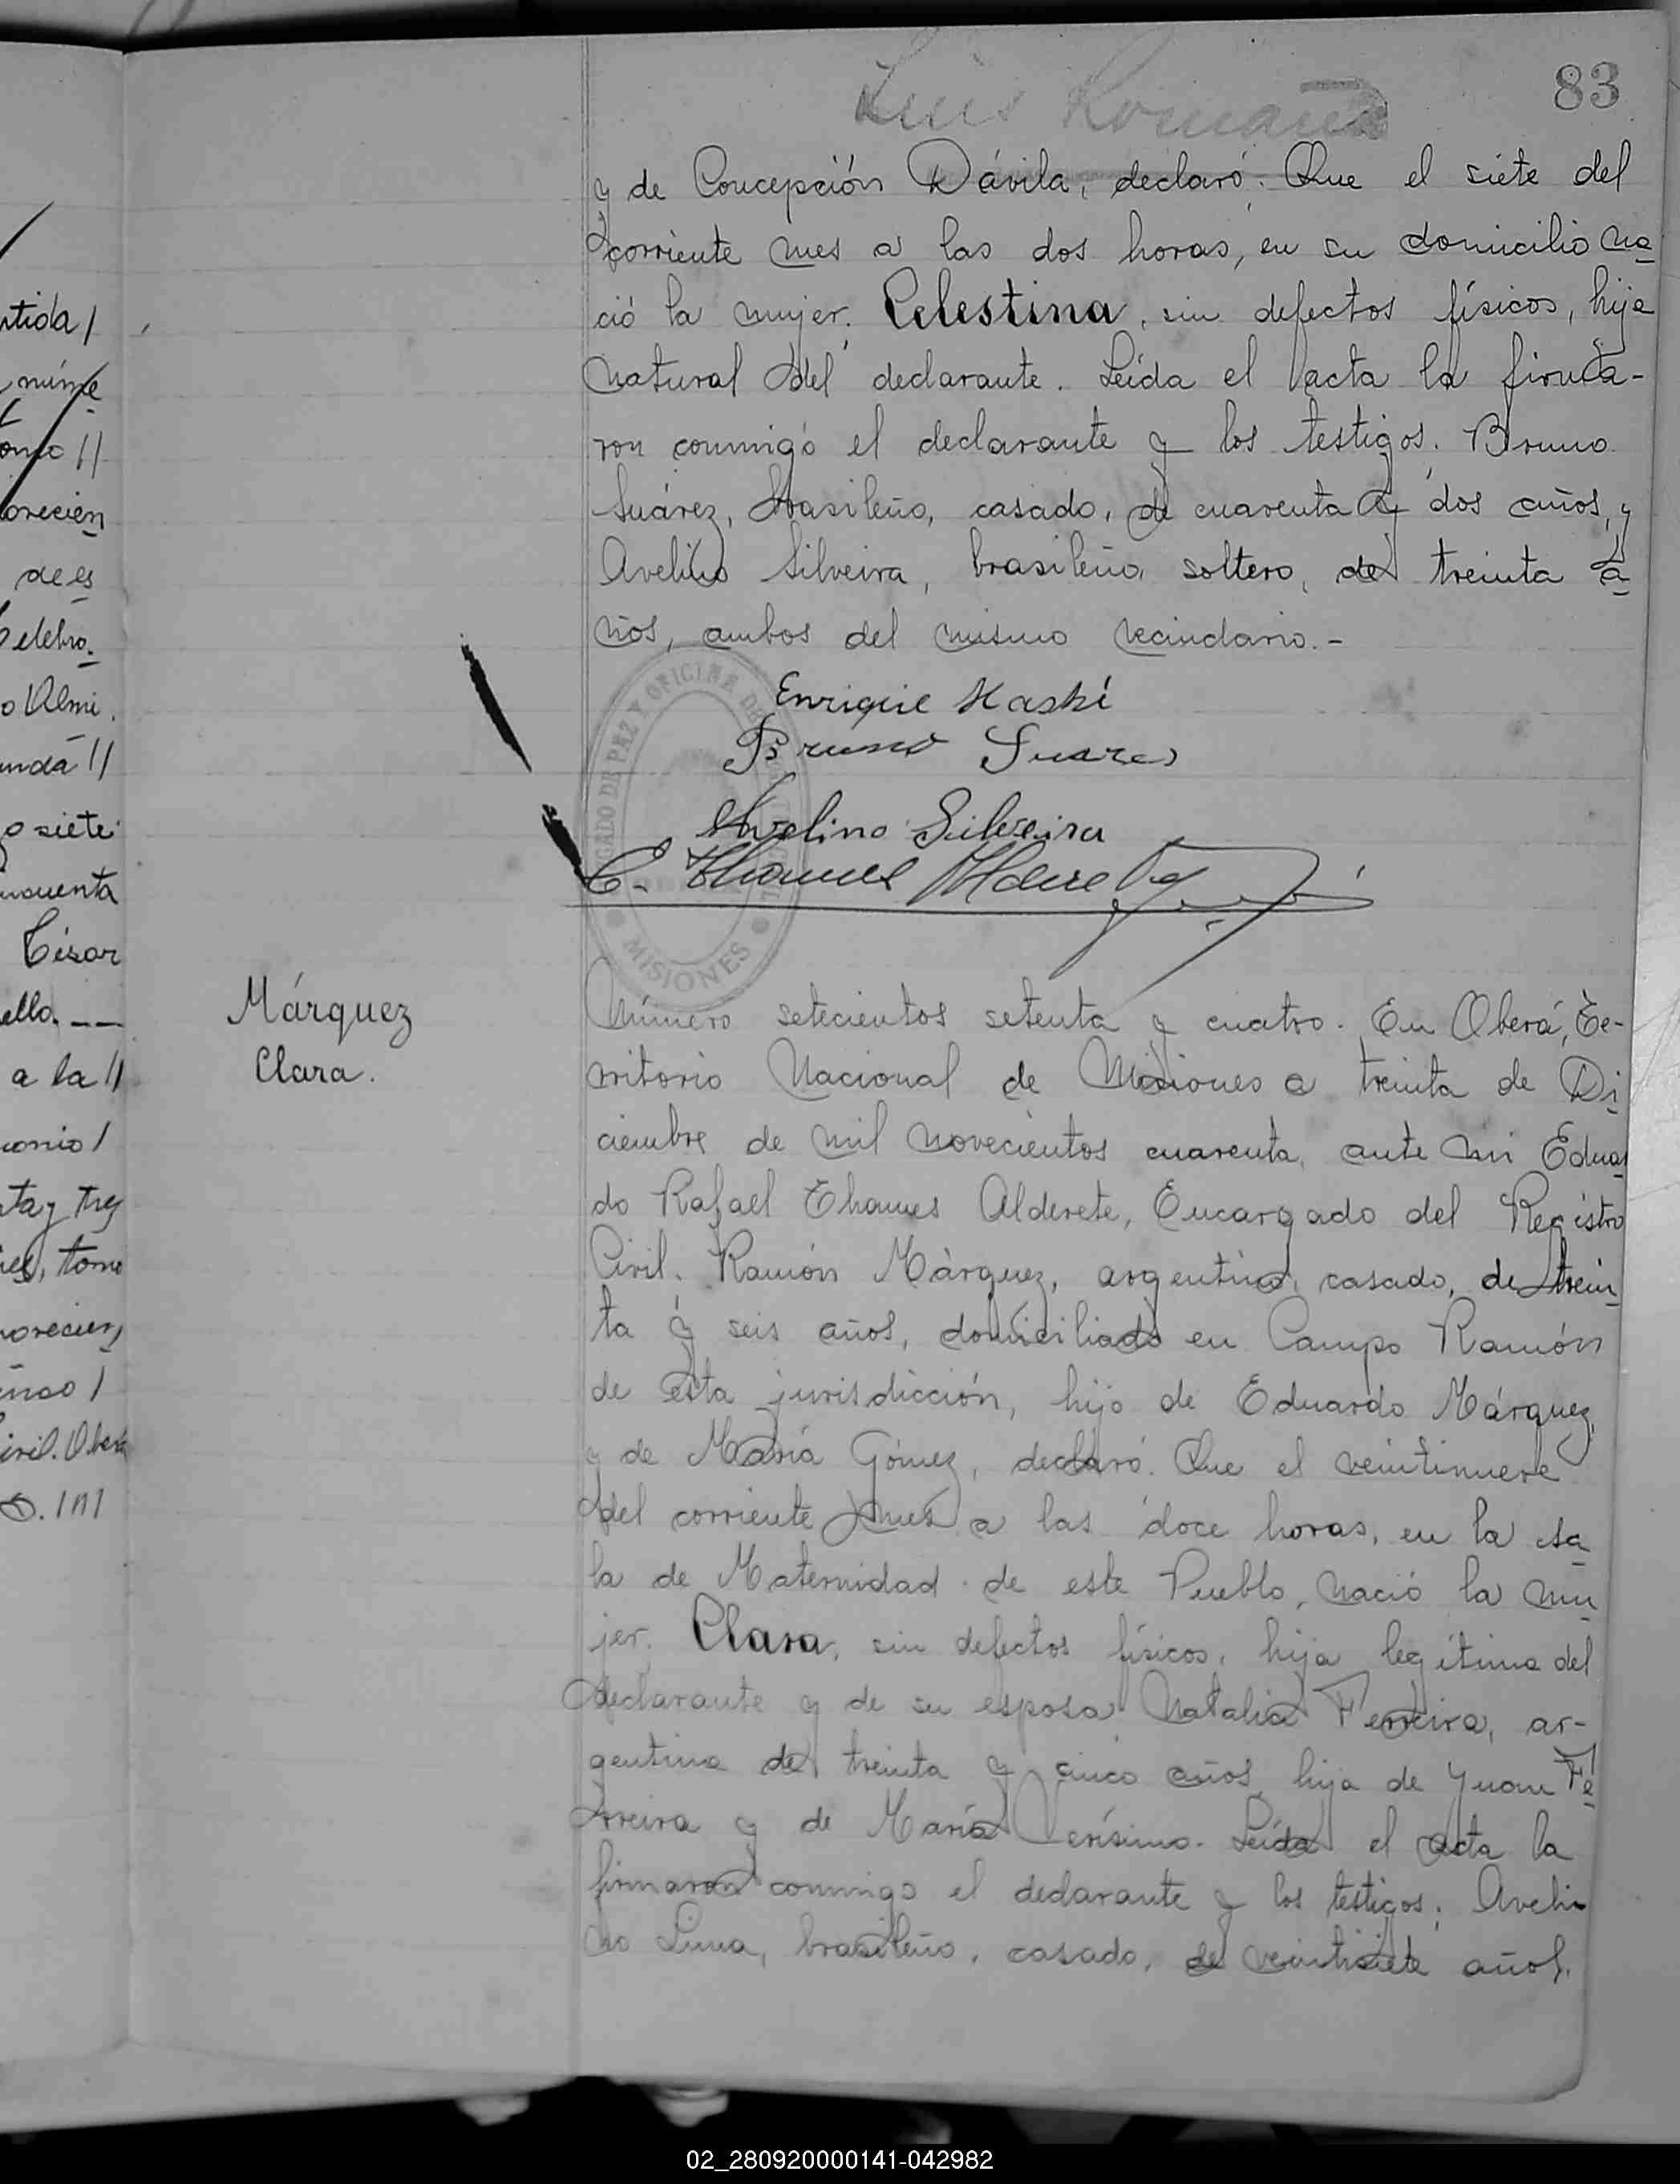 83
Luis Romaña
y de Concepción Dávila, declaró: Que el siete del
corriente mes a las dos horas, en su domicilio na
ció la mujer. Celestina, sin defectos físicos, hija
natural del declarante. Leída el acta la firma-
ron conmigo el declarante y los testigos. Bruno
Suárez, brasileño, casado, de cuarenta y dos años, y
Avelino Silveira, brasileño, soltero, de treinta a
ños, ambos del mismo vecindario.-
Enrique Kaski
Bruno Suares
Avelino Silveira
E. Thames Alderete
JUZGADO DE PAZ Y OFICINA DE
MISIONES
Márquez
Clara.
Número setecientos setenta y cuatro. En Oberá, Te-
rritorio Nacional de Misiones a treinta de Di
ciembre de mil novecientos cuarenta, ante mi Eduar
do Rafael Thames Alderete, Encargado del Registro
Civil. Ramón Márquez, argentino, casado, de trein
ta y seis años, domiciliado en Campo Ramón
de esta jurisdicción, hijo de Eduardo Márquez,
y de María Gómez, declaró. Que el veintinueve
del corriente mes a las doce horas, en la sa
la de Maternidad de este Pueblo, nació la mu
jer. Clara, sin defectos físicos, hija legítima del
declarante y de su esposa Natalia Ferreira, ar-
gentina de treinta y cinco años, hija de Juan Fe
rreira y de María Verísimo. Leída el acta la
firmaron conmigo el declarante y los testigos: Aveli
no Lima, brasileño, casado, de veintisiete años,
tida /
núme
orecien
de es
elebro.
o Almi.
unda //
o siete
cuenta
César
ello. --
a la //
onio /
ta y tres
tomo
orecien
D. 1171
02_280920000141-042982